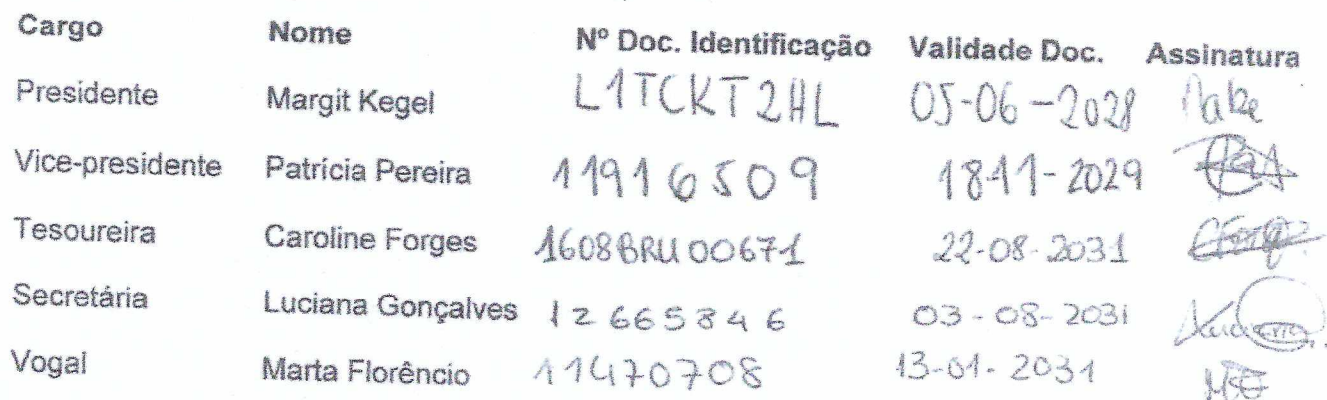 Cargo Nome Nº Doc. Identificação Validade Doc. Assinatura
Presidente Margit Kegel L1TCKT2HL 05-06-2028
Vice-presidente Patrícia Pereira 11916509 18-11-2029
Tesoureira Caroline Forges 1608BRU00671 22-08-2031
Secretária Luciana Gonçalves 12665846 03-08-2031
Vogal Marta Florêncio 11470708 13-01-2031